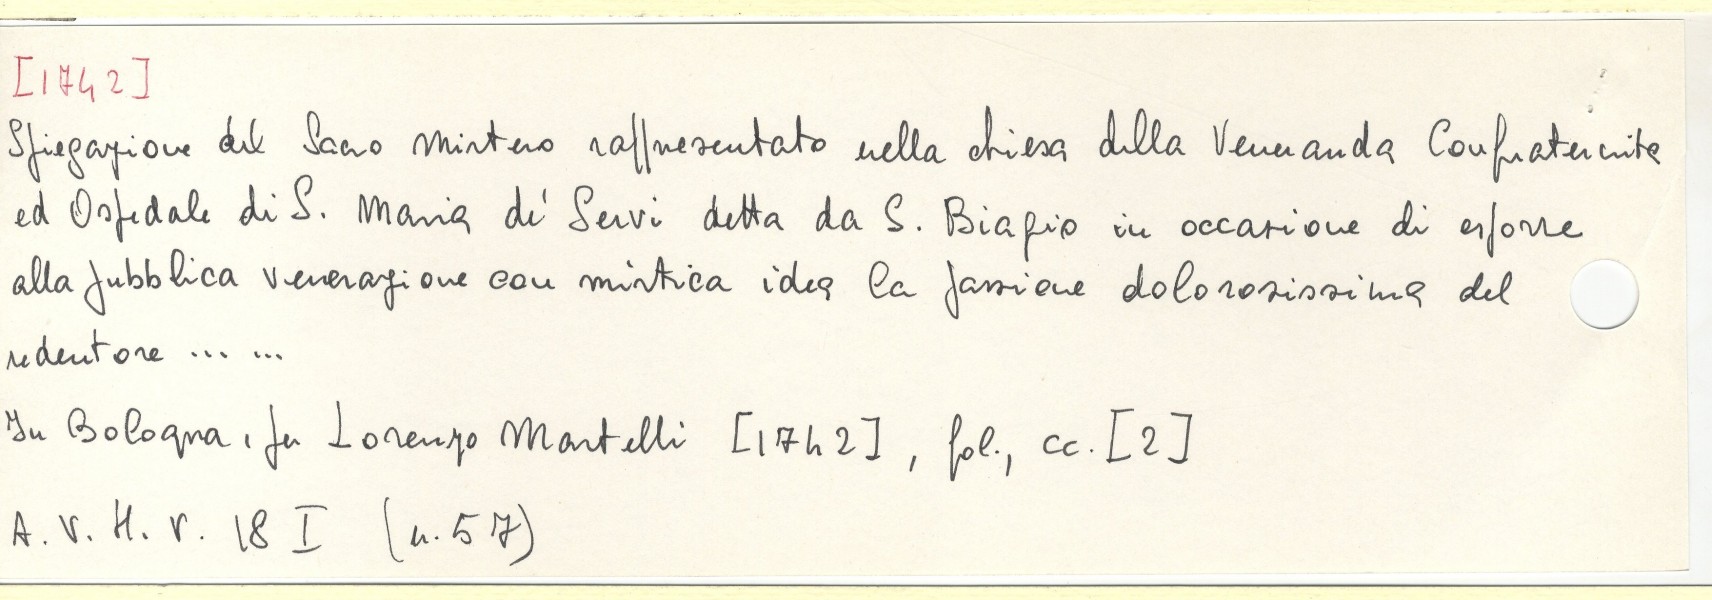 [1742]
Spiegazione del Sacro Mistero rappresentato nella chiesa della Veneranda Confraternita
ed Ospedale di S. Maria de' Servi detta da S. Biagio in occasione di esporre
alla pubblica venerazione con mistica idea la passione dolorosissima del
redentore ... ...
In Bologna, per Lorenzo Martelli [1742], fol., cc. [2]
A. V. H. V. 18 I (n. 57)